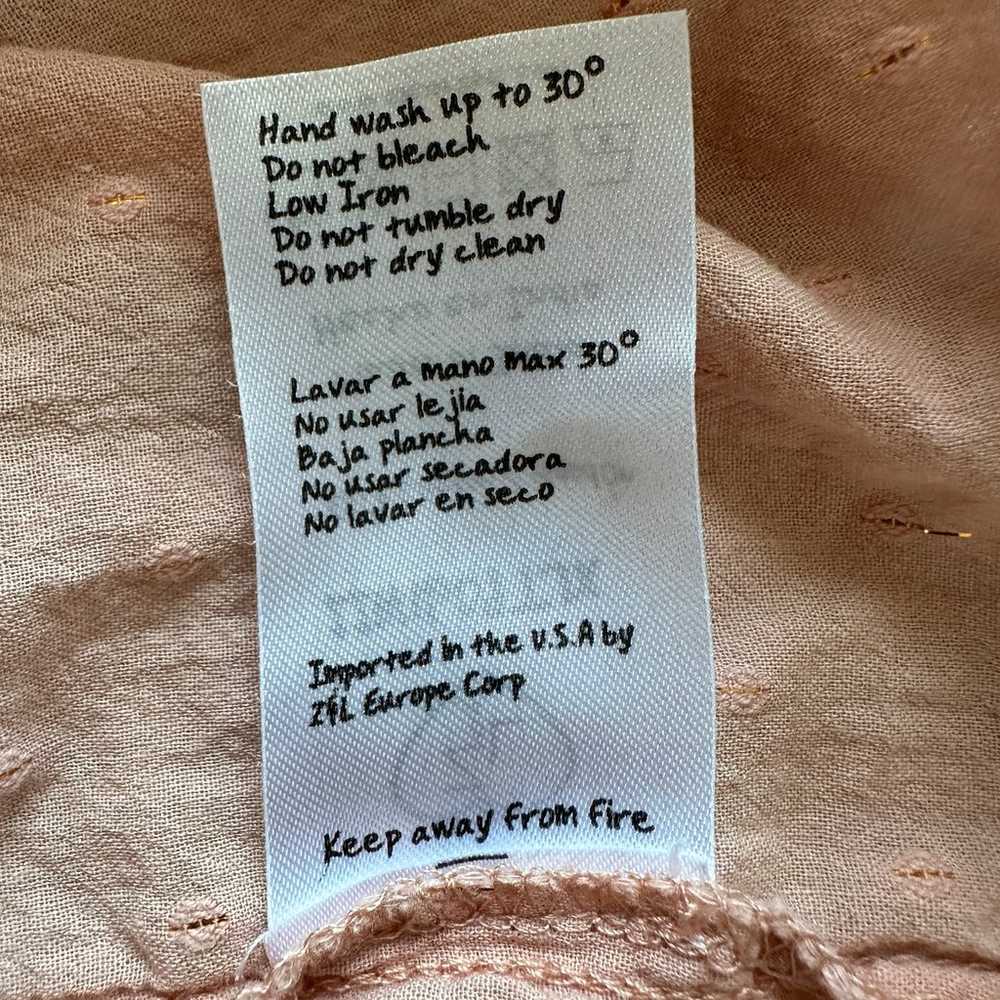 Hand wash up to 30°
Do not bleach
Low Iron
Do not tumble dry
Do not dry clean
Lavar a mano max 30°
No usar lejia
Baja plancha
No usar secadora
No lavar en seco
Imported in the U.S.A by
Z&L Europe Corp
Keep away from fire